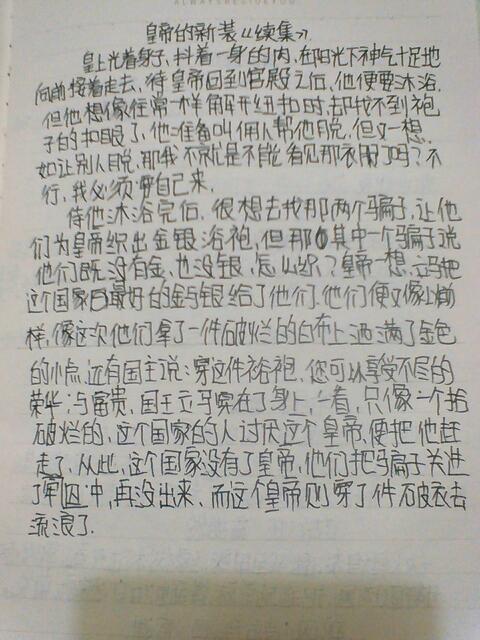 ALWAYSBESIDEYOU
皇帝的新装《续集》
皇上光着身子,抖着一身的肉,在阳光下神气十足地
向前接着走去,待皇帝回到宫殿之后,他便要沐浴.
但他想像往常一样解开纽扣时,却找不到袍
子的扣眼了,他准备叫佣人帮他脱,但又一想,
如让别人脱,那我不就是不能看见那衣服了吗?不
行,我必须要自己来.
待他沐浴完后,很想去找那两个骗子,让他
们为皇帝织出金银浴袍,但那其中一个骗子说
他们既没有金,也没银,怎么织?皇帝一想,立马把
这个国家最好的金与银给了他们,他们便又像上前
样,像这次他们拿了一件破烂的白布上洒满了金色
的小点,还有国主说:穿这件浴袍,您可以享受不尽的
荣华与富贵,国王立马穿在了身上,一看,只像一个拾
破烂的,这个国家的人讨厌这个皇帝,便把他赶
走了,从此,这个国家没有了皇帝,他们把骗子关进
了牢囚中,再没出来,而这个皇帝则穿了件破衣去
流浪了.